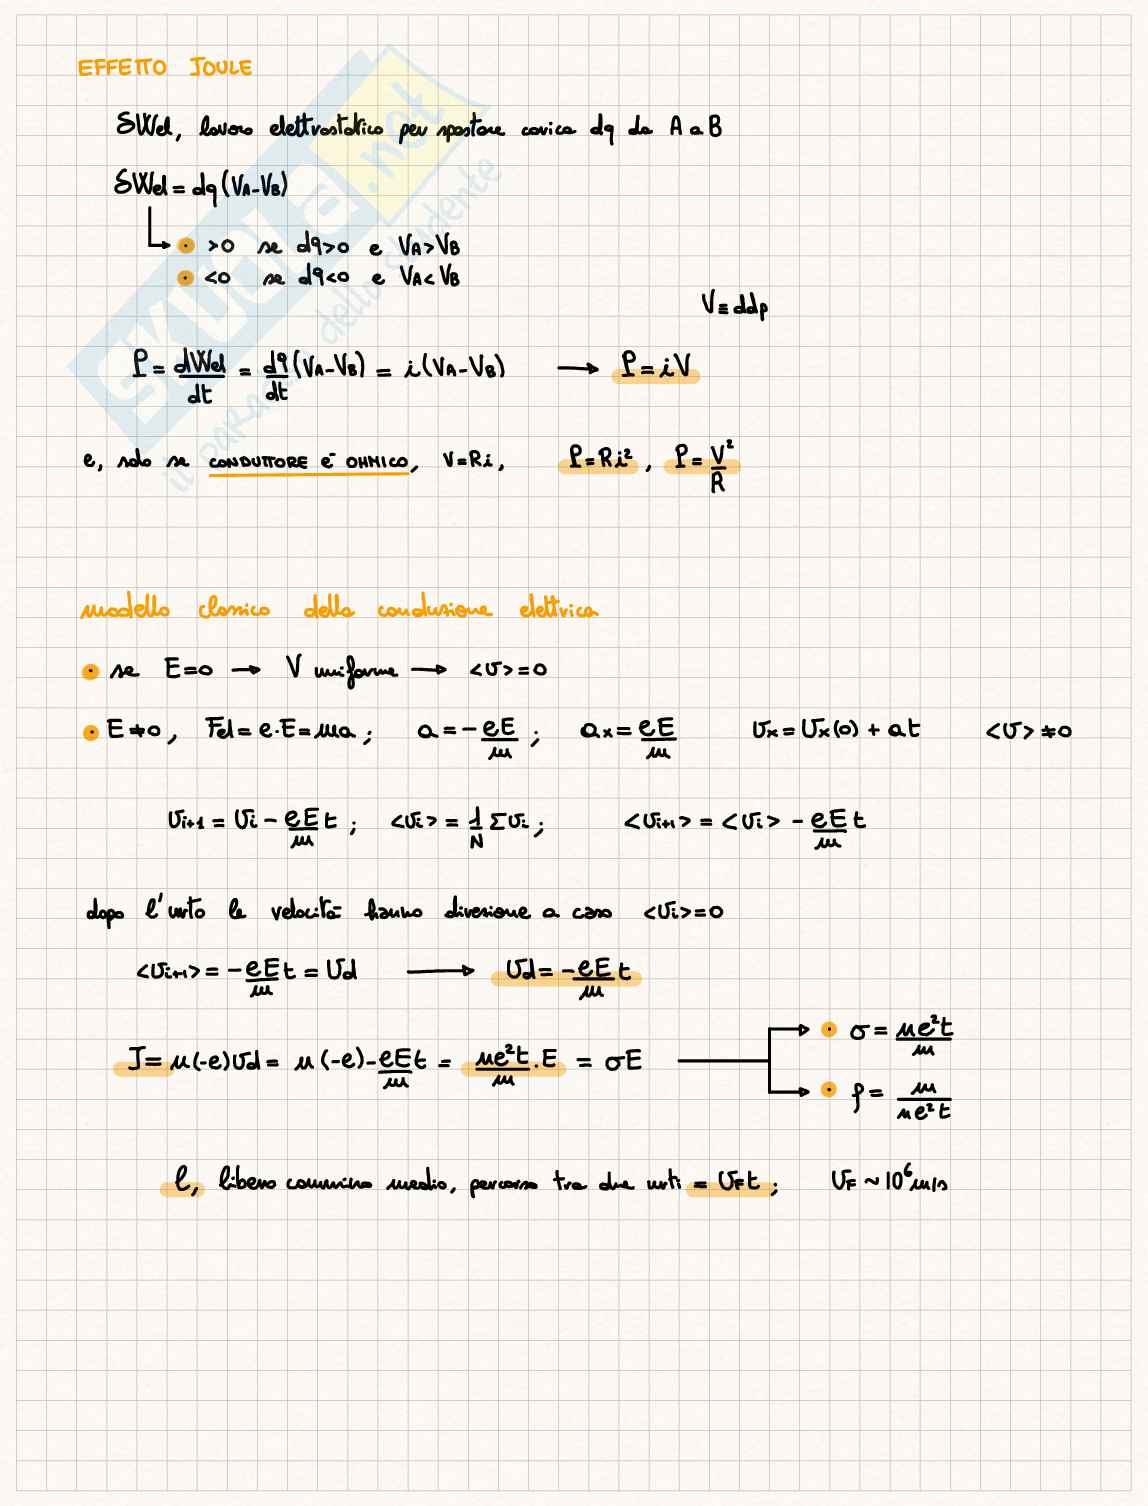 EFFETTO JOULE
δWel, lavoro elettrostatico per spostare carica dq da A a B
δWel = dq (VA-VB)
>0 se dq>0 e VA>VB
<0 se dq<0 e VA<VB
V ≡ ddp
P = dWel/dt = dq/dt (VA-VB) = i (VA-VB) → P = iV
e, solo se CONDUTTORE È OHMICO, V=Ri, P=Ri², P=V²/R
modello classico della conduzione elettrica
se E=0 → V uniforme → <v>=0
E≠0, Fel = e·E = ma; a = -eE/m; ax = eE/m vx = vx(0) + at <v>≠0
vi+1 = vi - eE/m t; <vi> = 1/N Σvi; <vi+1> = <vi> - eE/m t
dopo l'urto le velocità hanno direzione a caso <vi>=0
<vi+1> = -eE/m t = vd → vd = -eE/m t
J = n(-e)vd = n(-e)-eE/m t = ne²t/m · E = σE
σ = ne²t/m
ρ = m/ne²t
l, libero cammino medio, percorso tra due urti = vF t; vF ~ 10⁶ m/s
SKUOLA.net
il paradiso dello studente